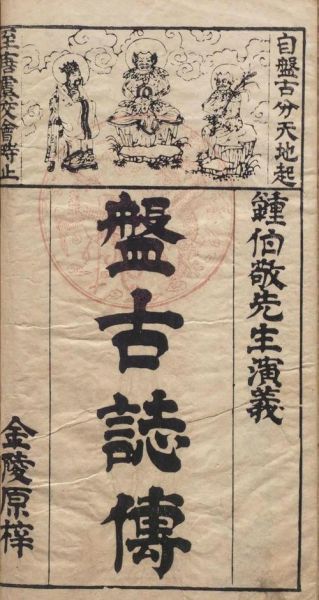 自盤古分天地起
至唐虞交會時止
鍾伯敬先生演義
盤古誌傳
金陵原梓